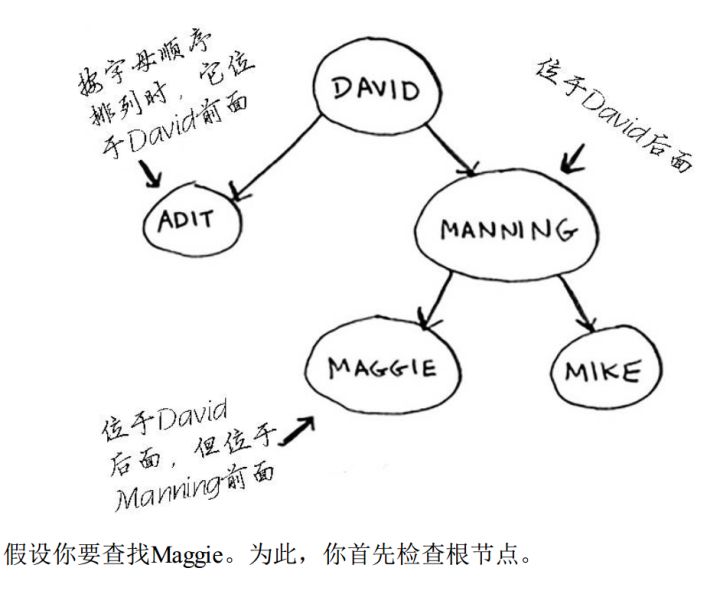 按字母顺序
排列时，它位
于David前面
DAVID
位于David后面
ADIT
MANNING
MAGGIE
MIKE
位于David
后面，但位于
Manning前面
假设你要查找Maggie。为此，你首先检查根节点。